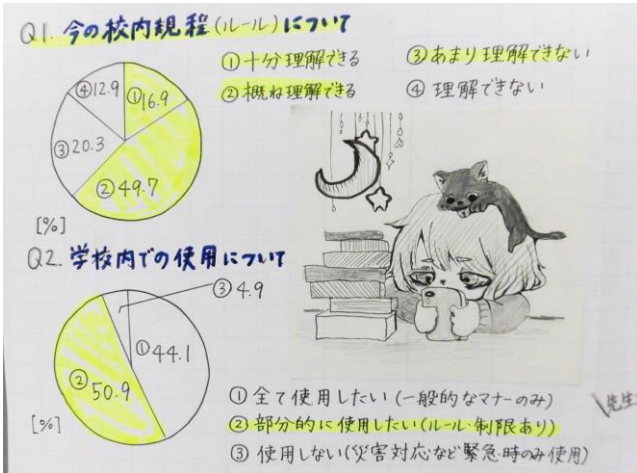 Q1. 今の校内規程(ルール)について
①十分理解できる
③あまり理解できない
②概ね理解できる
④理解できない
④12.9
①16.9
③20.3
②49.7
[%]
Q2. 学校内での使用について
③4.9
①44.1
②50.9
[%]
①全て使用したい(一般的なマナーのみ)
②部分的に使用したい(ルール・制限あり)
③使用しない(災害対応など緊急時のみ使用)
先生